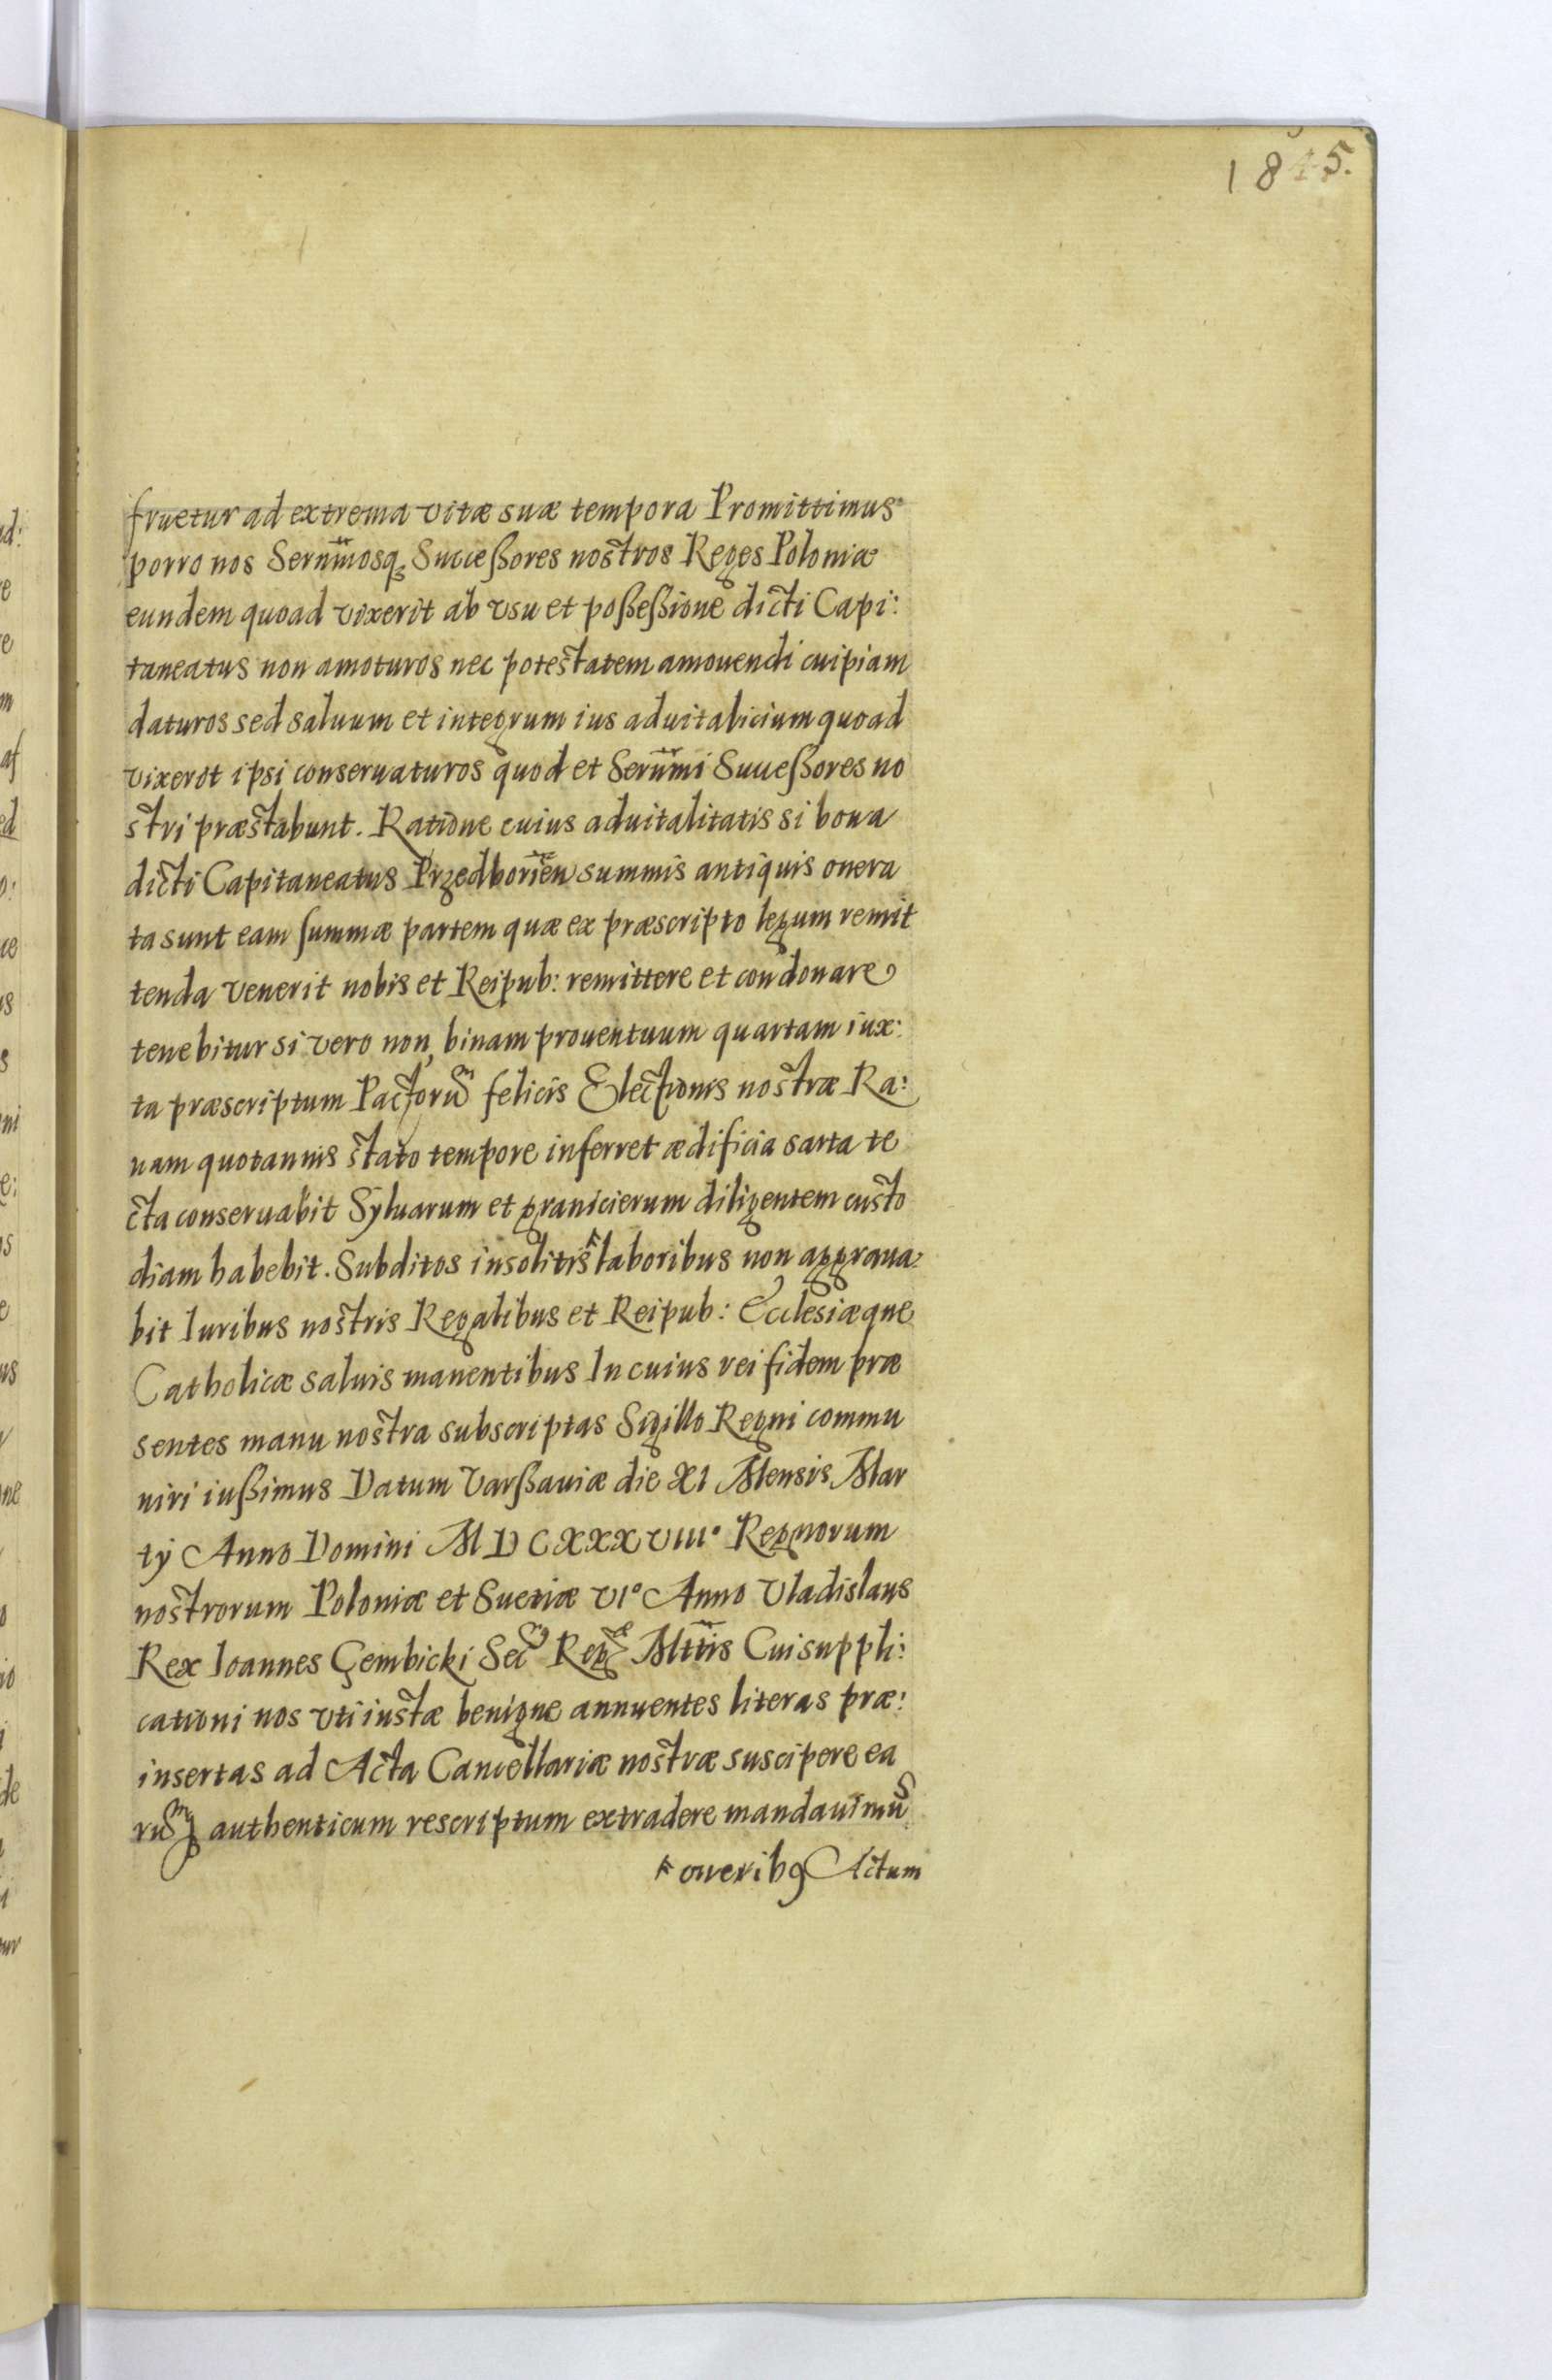 1845.
fruetur ad extrema vitæ suæ tempora Promittimus
porro nos Sernmosq Successores nostros Reges Poloniæ
eundem quoad vixerit ab vsu et poßeßione dicti Capi:
taneatus non amoturos nec potestatem amouendi cuipiam
daturos sed saluum et integrum ius aduitalicium quoad
vixerit ipsi conseruaturos quod et Sernmi Succeßores no
stri præstabunt. Ratione cuius aduitalitatis si bona
dicti Capitaneatus Przedborien summis antiquis onera
ta sunt eam summæ partem quæ ex præscripto legum remit
tenda venerit nobis et Reipub: remittere et condonare
tenebitur si vero non, binam prouentuum quartam iux:
ta præscriptum Pactorum felicis Electionis nostræ Ra:
uam quotannis stato tempore inferret ædificia sarta te
cta conseruabit Syluarum et granicierum diligentem custo
diam habebit. Subditos insolitis laboribus non aggraua:
bit Iuribus nostris Regalibus et Reipub: Ecclesiæque
Catholicæ saluis manentibus In cuius rei fidem præ
sentes manu nostra subscriptas Sigillo Regni commu
niri iußimus Datum Varßauiæ die XI Mensis Mar
tÿ Anno Domini MDCXXXVIII° Regnorum
nostrorum Poloniæ et Sueciæ VI° Anno Vladislaus
Rex Ioannes Gembicki Sec Reg Mttis Cui suppli:
cationi nos vti iustæ benigne annuentes literas præ:
insertas ad Acta Cancellariæ nostræ suscipere ea
rumq authenticum rescriptum extradere mandauimus
oneribꝰ Actum